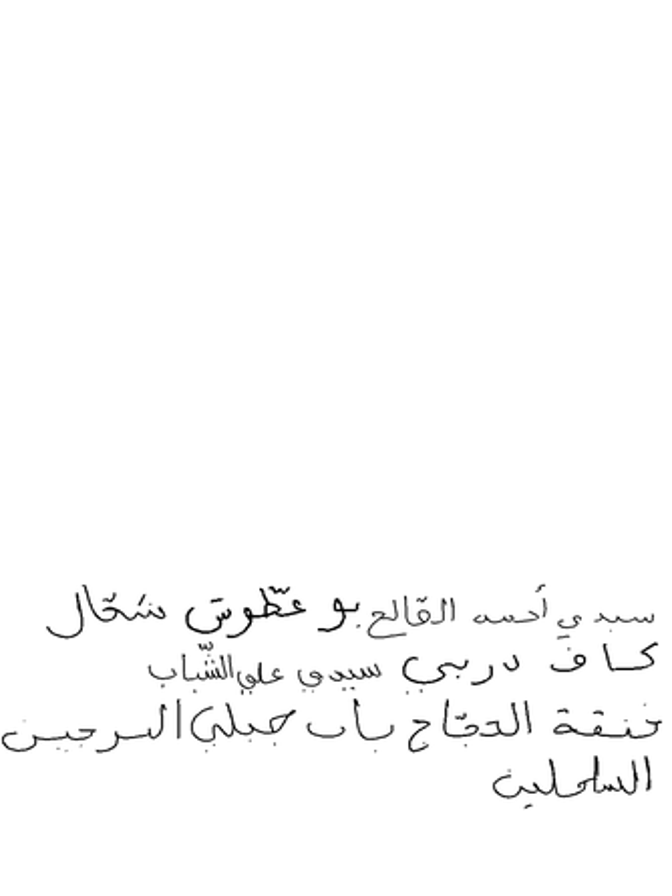 سيدي أحمد القالع بو عطّوش شحّال
كاف دربي سيدي علي الشّباب
خنقة الحجّاج باب جبلي البرجين
الساحلين